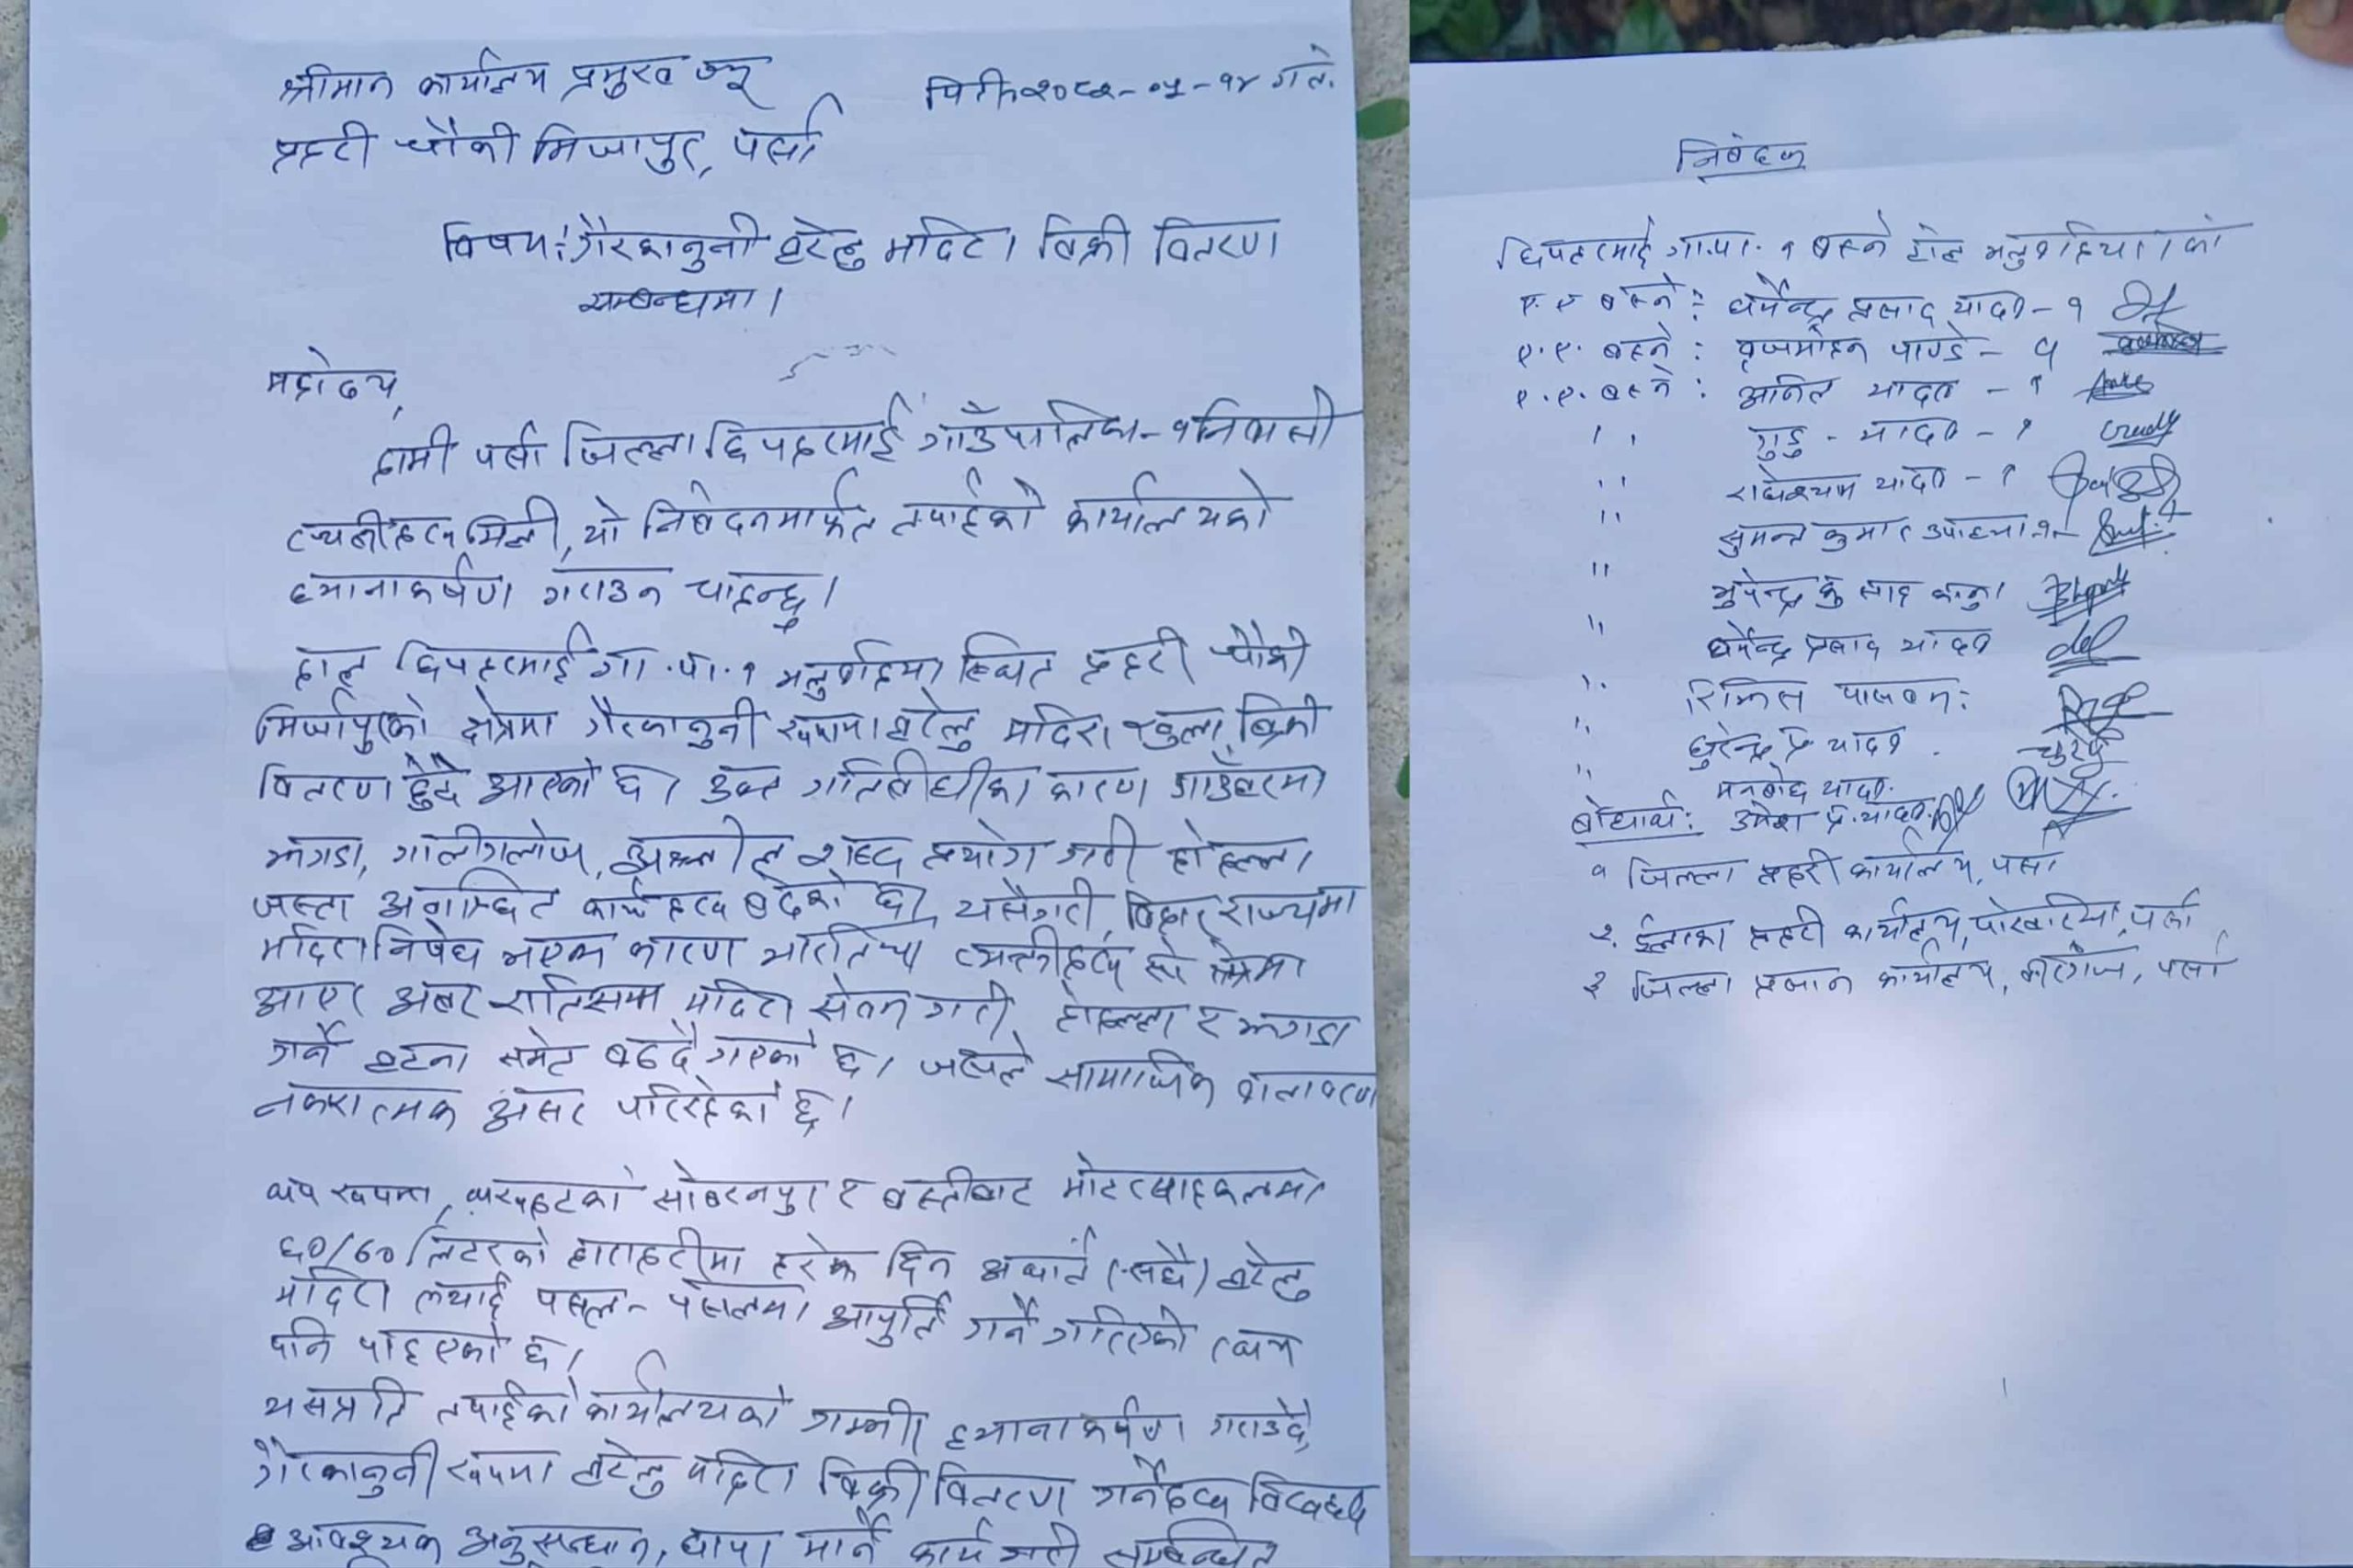 श्रीमान कार्यालय प्रमुख ज्यू
मिति २०८२-०५-१४ गते.
प्रहरी चौकी मिर्जापुर, पर्सा
विषय: गैरकानुनी घरेलु मदिरा बिक्री वितरण
सम्बन्धमा।
महोदय,
हामी पर्सा जिल्ला छिपहरमाई गाउँपालिका-१ निवासी
मिली, यो निवेदनमार्फत तपाईको कार्यालयको
ध्यानाकर्षण गराउन चाहन्छु।
हाल छिपहरमाई गा.पा.१ स्थित प्रहरी चौकी
मिर्जापुरको क्षेत्रमा गैरकानुनी रुपमा घरेलु मदिरा खुला बिक्री
वितरण हुँदै आएको छ। उक्त गतिविधीका कारण गाउँघरमा
झगडा, गालीगलोज, अश्लील शब्द प्रयोग गरी होहल्ला
जस्ता अवान्छित कार्यहरु बढेको छ। यसैगरी, बिहार राज्यमा
मदिरा निषेध भएका कारण भारतिय व्यक्तीहरु सो क्षेत्रमा
आएर अबेर रातिसम्म मदिरा सेवन गरी होहल्ला र झगडा
गर्ने घटना समेत बढ्दै गएको छ। जसले सामाजिक वातावरण
नकरात्मक असर परिरहेको छ।
थप रुपमा, सोबरनपुर र बस्तीबाट मोटरसाइकलमा
६०/७० लिटरको हरेक दिन अर्थात (सधै) घरेलु
मदिरा ल्याई पसल-पसलमा आपुर्ति गर्ने गरिएको
पनि पाइएको छ।
यसप्रति तपाईको कार्यालयको गम्भीर ध्यानाकर्षण गराउदै,
गैरकानुनी रुपमा घरेलु मदिरा बिक्री वितरण गर्नेहरु विरुद्ध
आवश्यक अनुसन्धान, छापा मार्ने कार्य गरी सम्बन्धित
निवेदक
छिपहरमाई गा.पा. १ बस्ने टोल
ऐ.ऐ बस्ने: धर्मेन्द्र प्रसाद यादव - १
ऐ.ऐ. बस्ने: बृजमोहन पाण्डे - १
ऐ.ऐ. बस्ने: अनिल यादव - १
" गुड्डु - यादव - १
" राधेश्याम यादव - १
" सुमन्त कुमार
" भुपेन्द्र
" धर्मेन्द्र प्रसाद यादव
" पासवान:
" प्र यादव.
" यादव.
बोधार्थ: उमेश प्र. यादव
१ जिल्ला प्रहरी कार्यालय, पर्सा
२. ईलाका प्रहरी कार्यालय, पोखरिया, पर्सा
३ जिल्ला प्रशासन कार्यालय, बीरगंज, पर्सा